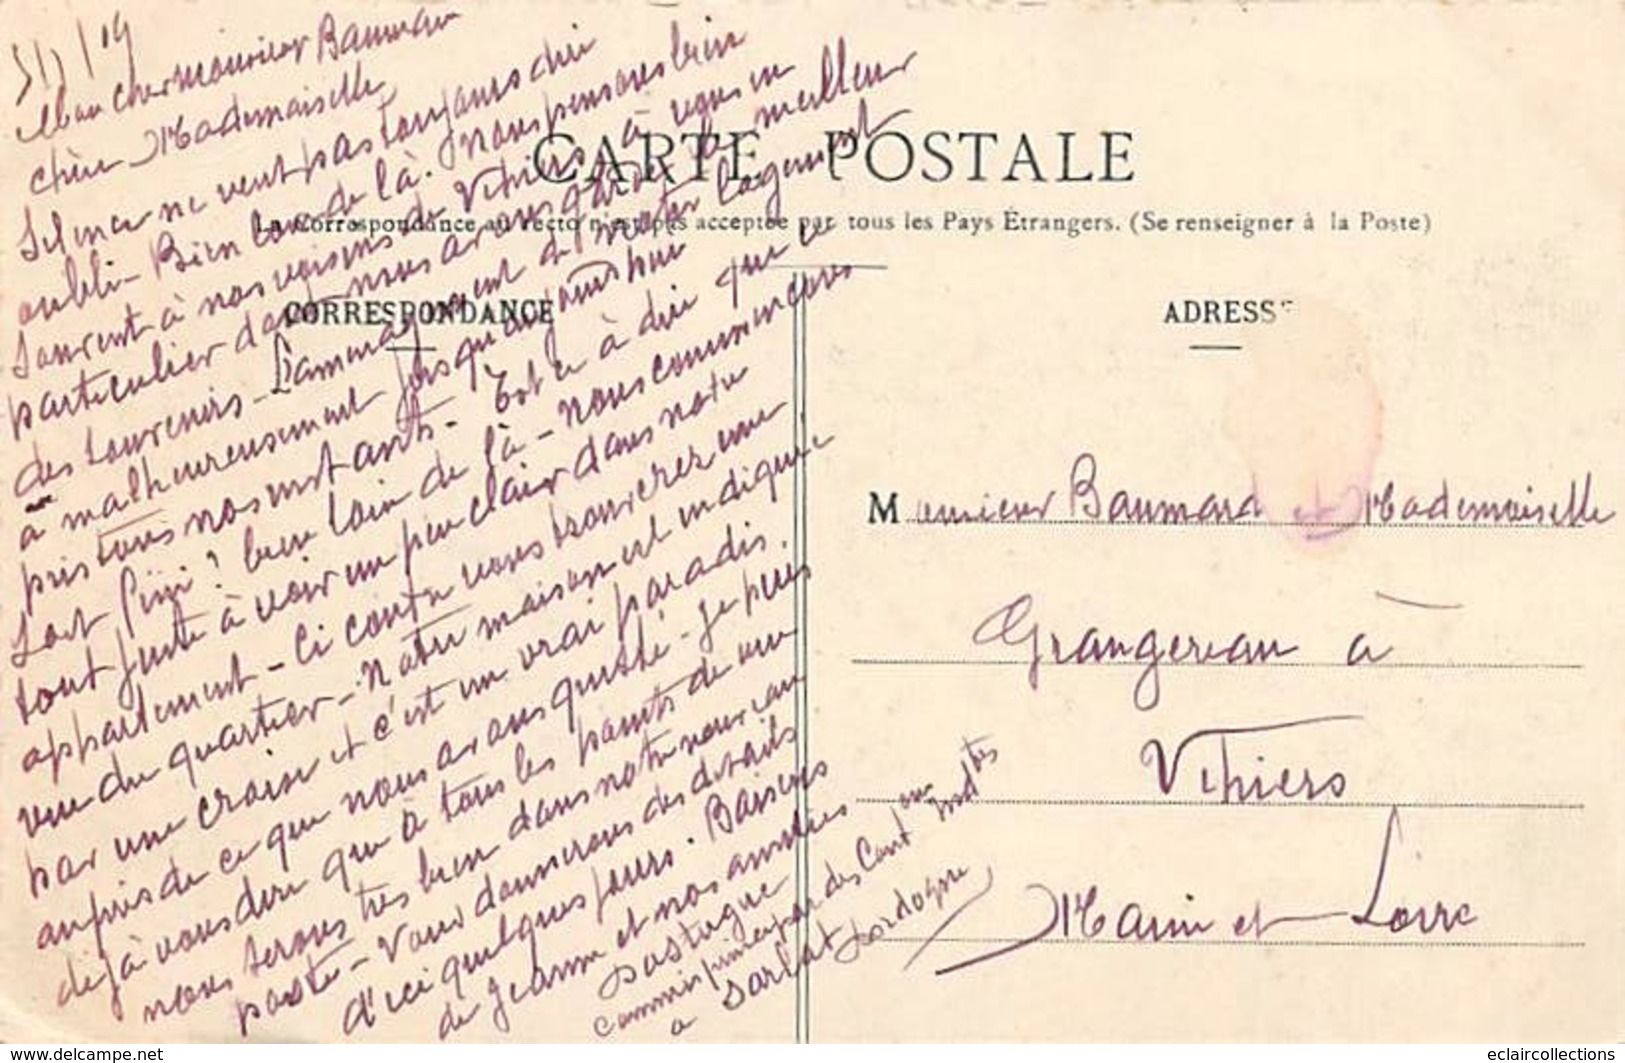 Mon cher monsieur Baumard
chère Mademoiselle,
Silence ne veut pas toujours dire
oubli - Bien loin de là. Nous pensons bien
souvent à nos voisins de Vihiers à vous en
particulier dont nous avons gardé le meilleur
des souvenirs - L'aménagement de notre logement
a malheureusement jusqu'aujourd'hui
pris tous nos instants - Est ce à dire que ce
soit fini ? bien loin de là - nous commençons
tout juste à voir un peu clair dans notre
appartement - Ci contre vous trouverez une
vue du quartier - Notre maison est indiquée
par une croix et c'est un vrai paradis.
auprès de ce que nous avons quitté - Je puis
déjà vous dire que à tous les points de vue
nous serons très bien dans notre nouveau
poste - Vous donnerons des détails
d'ici quelques jours. Baisers
de Jeanne et nos amitiés
commis principal des Cont ons Indtes
a Sarlat Dordogne
CARTE POSTALE
La Correspondance au recto n'est pas acceptée par tous les Pays Étrangers. (Se renseigner à la Poste)
CORRESPONDANCE
ADRESSE
Monsieur Baumard et Mademoiselle
Grangereau à
Vihiers
Maine et Loire
www.delcampe.net
eclaircollections